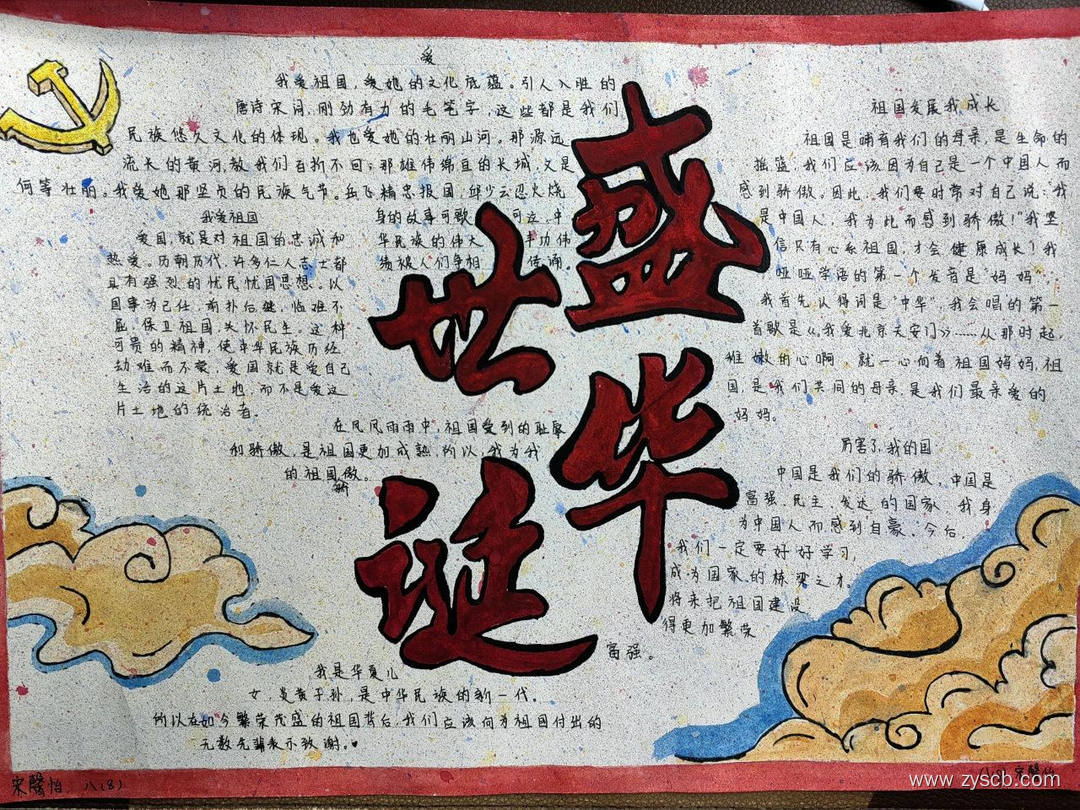 爱
我爱祖国,爱她的文化底蕴。引人入胜的
唐诗宋词,刚劲有力的毛笔字,这些都是我们
民族悠久文化的体现。我也爱她的壮丽山河。那源远
流长的黄河教我们百折不回;那雄伟绵亘的长城,又是
何等壮丽。我爱她那坚贞的民族气节。岳飞精忠报国,邱少云忍火烧
身的故事可歌 可泣,中
华民族的伟大 丰功伟
绩被人们争相 传诵。
我爱祖国
爱国,就是对祖国的忠诚和
热爱。历朝历代,许多仁人志士都
具有强烈的忧民忧国思想。以
国事为己任,前扑后继,临难不
屈,保卫祖国,关怀民生。这种
可贵的精神,使中华民族历经
劫难而不衰,爱国就是爱自己
生活的这片土地,而不是爱这
片土地的统治者。
在风风雨雨中,祖国受到的耻辱
和骄傲,是祖国更加成熟,所以,我为我
的祖国傲。
骄
盛
世
华
诞
祖国发展我成长
祖国是哺育我们的母亲,是生命的
摇篮,我们应该因为自己是一个中国人而
感到骄傲。因此,我们要时常对自己说:"我
是中国人,我为此而感到骄傲!"我坚
信只有心系祖国,才会健康成长!我
哑哑学语的第一个发音是"妈妈",
我首先认得词是"中华",我会唱的第一
首歌是《我爱北京天安门》……从那时起,
稚嫩的心啊,就一心向着祖国妈妈,祖
国,是我们共同的母亲,是我们最亲爱的
妈妈。
厉害了,我的国
中国是我们的骄傲,中国是
富强、民主、发达的国家,我身
为中国人而感到自豪,今后,
我们一定要好好学习,
成为国家的栋梁之才,
将来把祖国建设
得更加繁荣
富强。
我是华夏儿
女,炎黄子孙,是中华民族的新一代。
所以在如今繁荣茂盛的祖国背后,我们应该向为祖国付出的
无数先辈表示致谢。
宋馨怡 八(8)
www.zyscb.com